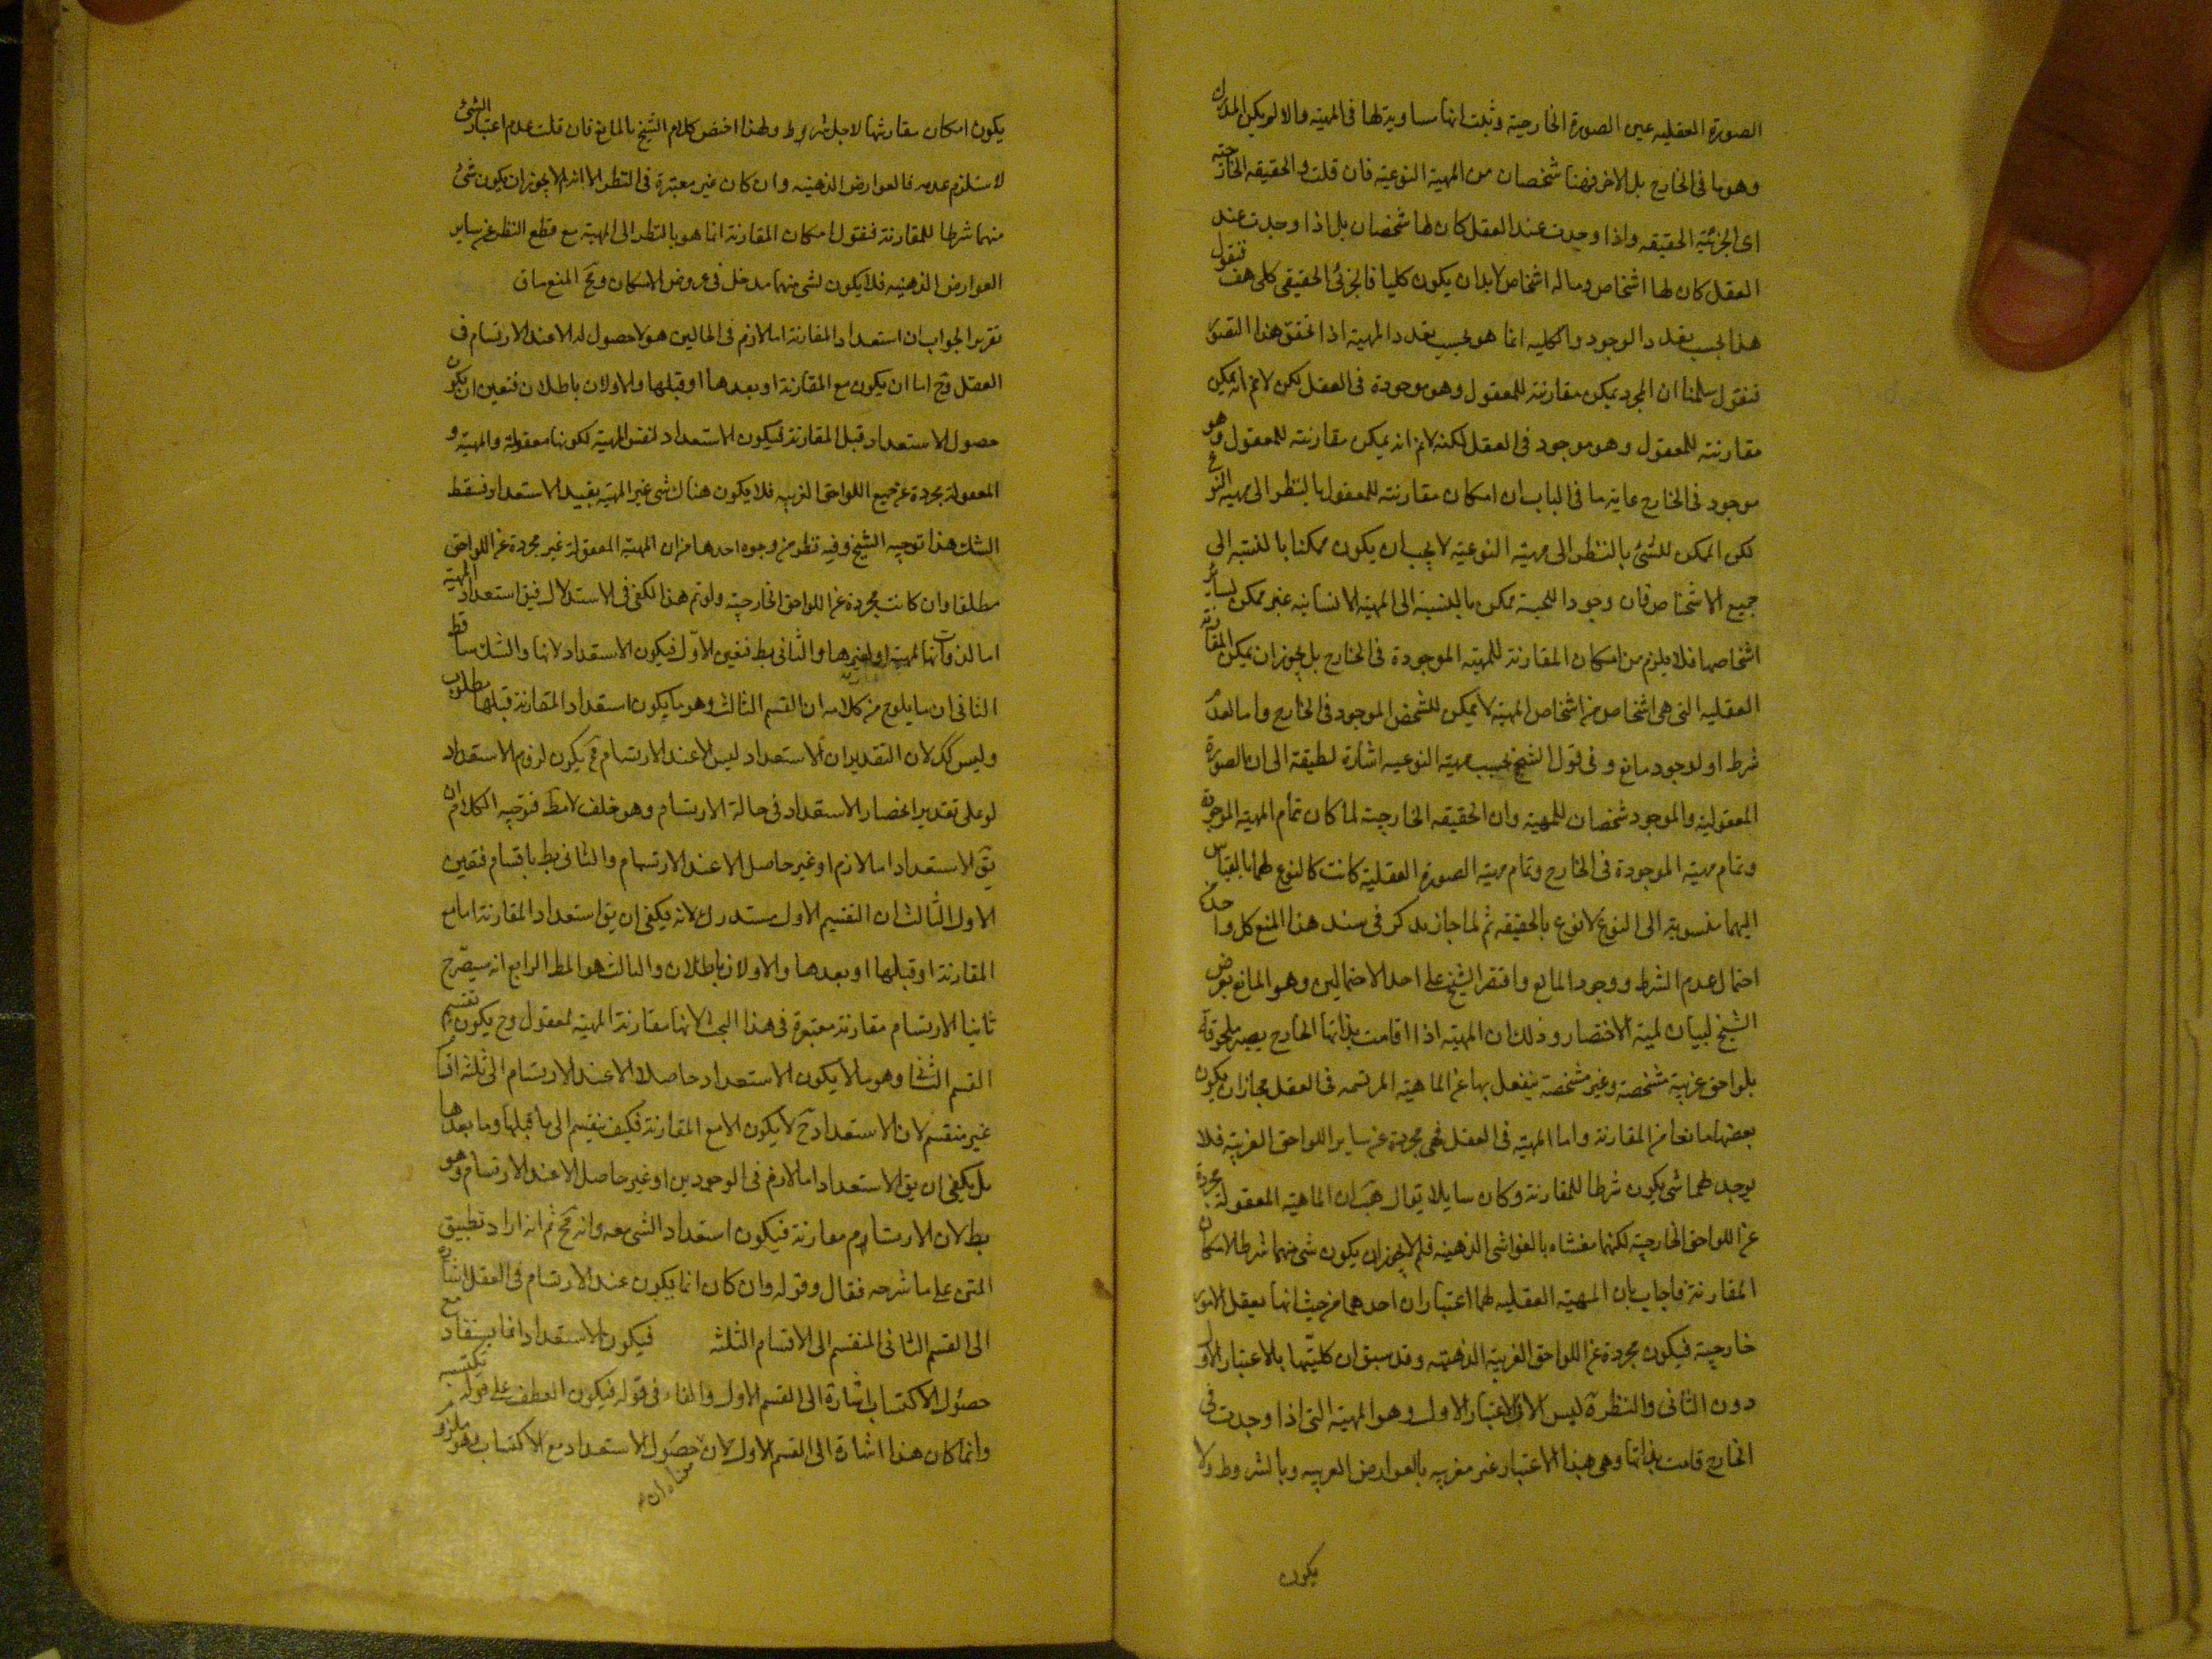 الصورة العقليه عين الصورة الخارجية وثبت انها مساوية لها فى المهية والا لم يكن المدرك
وهو ما فى الخارج بل الاخر فهنا شخصان من المهية النوعية فان قلت الحقيقه الخارجية
اى الجزئية الحقيقه واذا وجدت عند العقل كان لها شخصان بل اذا وجدت عند
العقل كان لها اشخاص وماله اشخاص لابد ان يكون كليا فالجزئى الحقيقى كلى هف فنقول
هذا بحسب تعدد الوجود والكليه انما هو بحسب تعدد المهية اذا تحقق هذا التصور
فنقول سلمنا ان المجرد يمكن مقارنته للمعقول وهو موجودة فى العقل لكن لانم انه يمكن
مقارنته للمعقول وهو موجود فى العقل لكنه لانم انه يمكن مقارنته للمعقول وهو
موجود فى الخارج غاية ما فى الباب ان امكان مقارنته للمعقول بالنظر الى مهية النوع
لكن الممكن للشئ بالنظر الى مهيته النوعية لا يجب ان يكون ممكنا بالنسبة الى
جميع الاشخاص فان وجود اللحية ممكن بالنسبة الى المهية الانسانيه غير ممكن لساير
اشخاصها فلا يلزم من امكان المقارنة للمهية الموجودة فى الخارج بل يجوز ان يمكن المقارنة
العقليه التى هى اشخاص من اشخاص المهية لا يمكن للشخص الموجود فى الخارج واما لعدم
شرط او لوجود مانع وفى قول الشيخ بحسب مهيته النوعيه اشارة لطيفة الى ان الصورة
المعقولية والموجود شخصان للمهية وان الحقيقه الخارجية لما كان تمام المهية الموجودة
وتمام مهية الموجودة فى الخارج وتمام مهية الصورة العقلية كانت كالنوع لهما بالقياس
اليهما منسوبة الى النوع لا نوع بالحقيقه ثم لما جاز يذكر فى سند هذا المنع كل واحد من
احتمال عدم الشرط ووجود المانع واقتصر الشيخ على احد الاحتمالين وهو المانع تعرض
الشيخ لبيان لمية الاختصار وذلك ان المهية اذا اقامت بذاتها الخارج يصير ملحوقة
بلواحق غريبة مشخصة وغير مشخصة ينفعل بها عن الماهية المرتسمه فى العقل فجاز ان يكون
بعضها مانعا من المقارنة واما المهية فى العقل فهى مجردة عن ساير اللواحق الغريبة فلا
يوجد لهما شى يكون شرطا للمقارنة وكان سايلا يقول هب ان الماهية المعقولة مجردة
عن اللواحق الخارجية لكنها مغشاه بالغواشى الذهنيه فلم لا يجوز ان يكون شى منهما شرطا لامكان
المقارنة فاجاب بان المهية العقليه لهما اعتباران احدهما من حيث انها يعقل الامور
خارجية فيكون مجردة عن اللواحق الغريبة الذهنية وقد سبق ان كليتها بالاعتبار الاول
دون الثانى والنظر ليس الا فى الاعتبار الاول وهو المهية التى اذا وجدت فى
الخارج قامت بذاتها وهى بهذا الاعتبار غير مقربه بالعوارض الغريبه وبالشروط ولا
يكون
يكون امكان مقارنتها لاجل شروط ولهذا اختص كلام الشيخ بالمانع فان قلت عدم اعتبار الشئ
لا يستلزم عدمه فالعوارض الذهنيه وان كان غير معتبرة فى النظر الا انه لم لا يجوز ان يكون شئ
منهما شرطا للمقارنة فنقول امكان المقارنة انما هو بالنظر الى المهية مع قطع النظر عن ساير
العوارض الذهنيه فلا يكون لشى منهما مدخل فى عروض الامكان وح المنع ساق
تقرير الجواب ان استعداد المقارنة اما لازم فى الحالين هو لا حصول له الا عند الارتسام ف
العقل وح اما ان يكون مع المقارنة او بعدها او قبلها والاولان باطلان فتعين ان يكون
حصول الاستعداد قبل المقارنة فيكون الاستعداد لنفس المهية لكونها معقولة والمهية و
المعقولة مجردة عن جميع اللواحق الغريبه فلا يكون هناك شى غير المهية بقيد الاستعداد فسقط
الشك هذا توجيه الشيخ وفيه نظر من وجوه احدها من ان المهية المعقولة غير مجردة عن اللواحق
مطلقا وان كانت مجردة عن اللواحق الخارجية ولو تم هذا لكفى فى الاستدلال فيق استعداد المهية
اما لذواتها لمهية او لغيرها والثانى بط فتعين الاول فيكون الاستعداد لانها والشك ساقط
الثانى ان ما يلوح من كلامه ان القسم الثالث وهو ما يكون استعداد المقارنة قبلها مطلوب
وليس كك لان التقدير ان الاستعداد ليس الا عند الارتسام فح يكون لزوم الاستعداد
لو على تقدير انحصار الاستعداد فى حالة الارتسام وهو خلف لا مط فتوجيه الكلام ان
يق الاستعداد اما لازم او غير حاصل الا عند الارتسام والثانى بط باقسام فتعين
الاول الثالث ان التقسيم الاول مستدرك لانه يكفى ان يق استعداد المقارنة اما مع
المقارنة او قبلها او بعدها والاولان باطلان والثالث هو المط الرابع انه سيصرح
ثانيا الارتسام مقارنة معتبرة فى هذا البحث لانها مقارنة المهية لمعقول وح يكون تقسيم
القسم الثانى وهو ما لا يكون الاستعداد حاصلا الا عند الارتسام الى ثلثه اقسام
غير منقسم لان الاستعداد ح لا يكون الا مع المقارنة فكيف ينقسم الى ما قبلها وما بعدها
بل يكفى ان يق الاستعداد اما لازم فى الوجودين او غير حاصل الا عند الارتسام وهو
بط لان الارتسام مقارنة فيكون استعداد الشى معه وانه مح ثم انه اراد تطبيق
المتن على ما شرحه فقال وقوله وان كان انما يكون عند الارتسام فى العقل اشارة
الى القسم الثانى المنقسم الى الاقسام الثلثه فيكون الاستعداد انما يستفاد مع
حصول الاكتساب اشارة الى القسم الاول والفاء فى قوله فيكون العطف على قوله تكتسبه
وانما كان هذا اشارة الى القسم الاول لان حصول الاستعداد مع الاكتساب وهو ملزوم